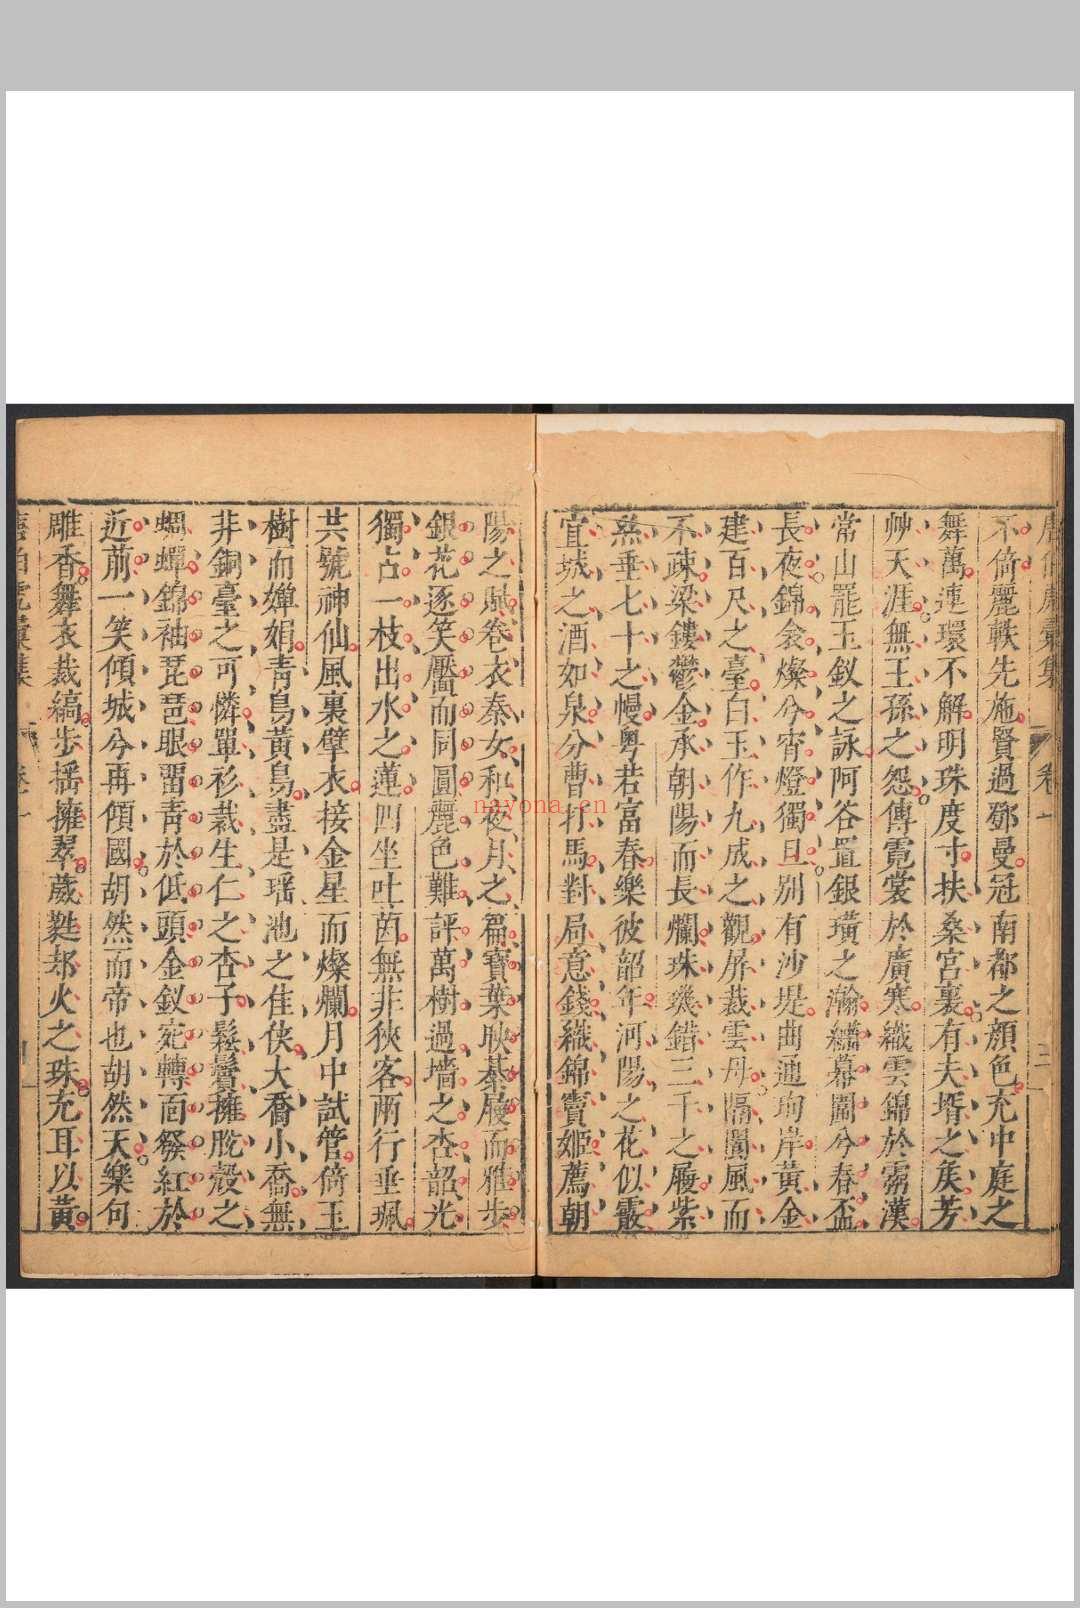 唐伯虎彙集 卷一 三
不倚麗軼先施賢過鄧曼冠南都之顏色充中庭之
舞萬連環不解明珠度寸扶桑宮裏有夫壻之矦芳
艸天涯無王孫之怨傳霓裳於廣寒織雲錦於霱漢
常山罷玉釵之詠阿谷置銀璜之瀚繡幕闢兮春盃
長夜錦衾燦兮宵燈獨旦別有沙堤曲通珣岸黃金
建百尺之臺白玉作九成之觀屏裁雲母隔閬風而
不疎梁鏤鬱金承朝陽而長爛珠璣錯三千之履紫
燕垂七十之幔粵若富春樂彼韶年河陽之花似霰
宜城之酒如泉分曹打馬對局意錢織錦竇姬薦朝
陽之賦卷衣秦女和夜月之篇寳葉映綦履而雅步
銀花逐笑靨而同圓麗色難評萬樹過墙之杏韶光
獨占一枝出水之蓮四坐吐茵無非狹客兩行垂珮
共號神仙風裏擘衣接金星而燦爛月中試管倚玉
樹而嬋娟靑鳥黃鳥盡是瑶池之佳俠大喬小喬無
非銅臺之可憐單衫裁生仁之杏子鬆鬢擁脫殼之
蜩蟬錦袖琵琶眼畱靑於低頭金釵宛轉面發紅於
近前一笑傾城兮再傾國胡然而帝也胡然天樂句
雕香舞衣裁縞步搖擁翠葳甤却火之珠充耳以黃